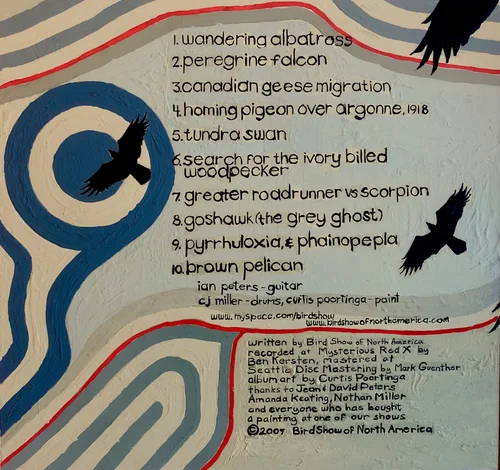 1. wandering albatross
2. peregrine falcon
3. canadian geese migration
4. homing pigeon over argonne, 1918
5. tundra swan
6. search for the ivory billed
woodpecker
7. greater roadrunner vs scorpion
8. goshawk (the grey ghost)
9. pyrrhuloxia, & phainopepla
10. brown pelican
ian peters - guitar
cj miller - drums, curtis poortinga - paint
www.myspace.com/birdshow
www.birdshowofnorthamerica.com
written by Bird Show of North America
recorded at Mysterious Red X by
Ben Kersten, mastered at
Seattle Disc Mastering by Mark Guenther
album art by Curtis Poortinga
thanks to Jean & David Peters
Amanda Keating, Nathan Miller
and everyone who has bought
a painting at one of our shows
©2007 Bird Show of North America